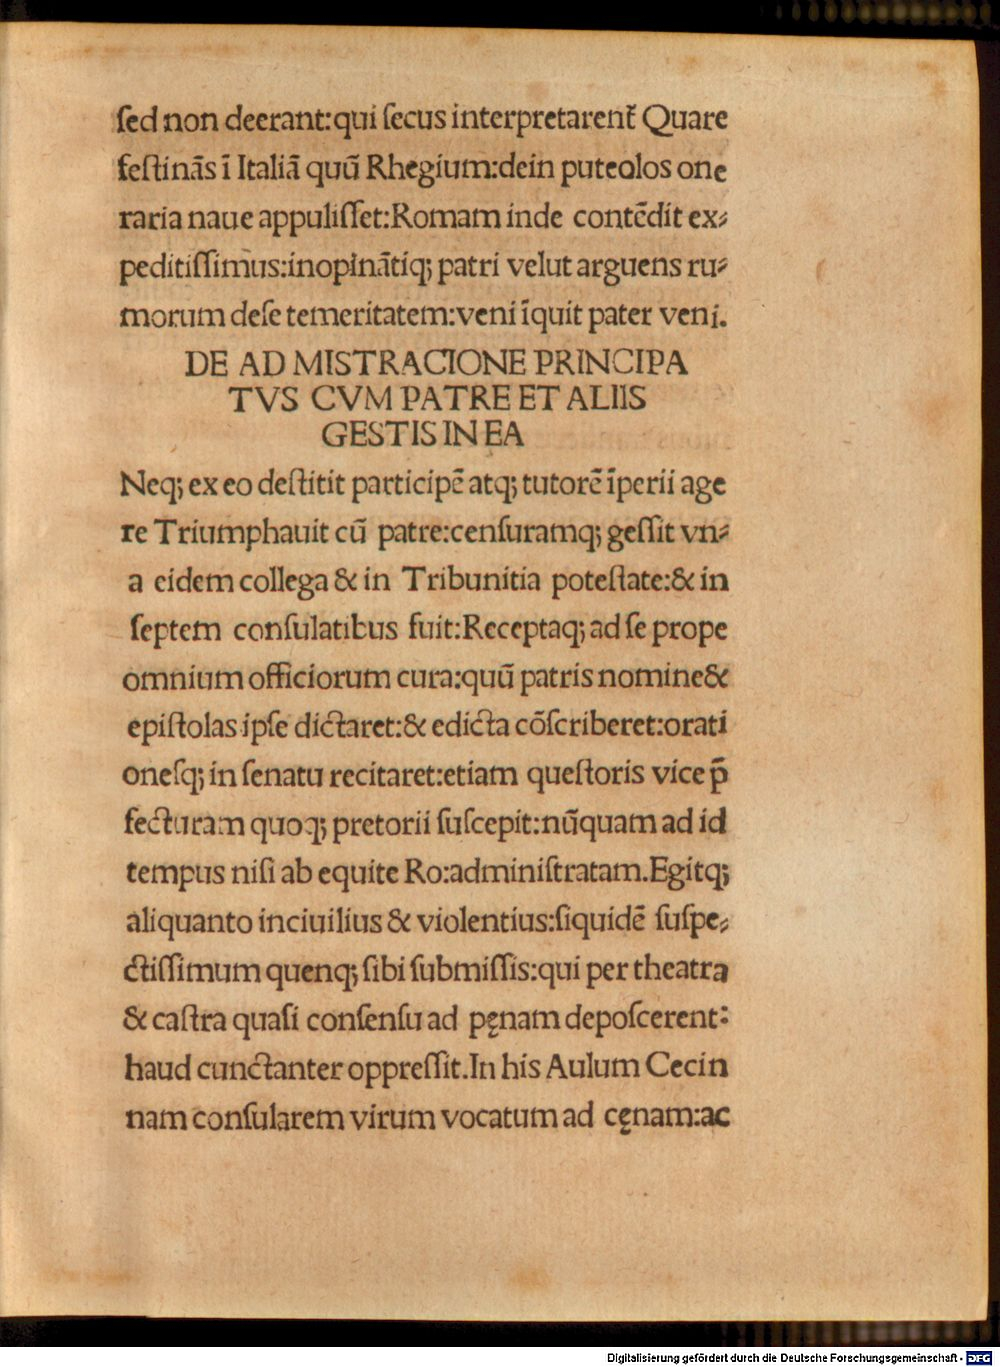 ſed non deerant:qui ſecus interpretarent᷑ Quare
feſtinās ī Italiā quū Rhegium:dein puteolos one
raria naue appuliſſet:Romam inde contēdit ex⸗
peditiſſimus:inopināticꝫ patri velut arguens ru⸗
morum deſe temeritatem:veni īquit pater veni.
DE AD MISTRACIONE PRINCIPA
TVS CVM PATRE ET ALIIS
GESTIS IN EA
Neqꝫ ex eo deſtitit participē atqꝫ tutorē īperii age
re Triumphauit cū patre:cenſuramqꝫ geſſit vn⸗
a eidem collega & in Tribunitia poteſtate:& in
ſeptem conſulatibus fuit:Receptaqꝫ ad ſe prope
omnium officiorum cura:quū patris nomine&
epiſtolas ipſe dictaret:& edicta cōſcriberet:orati
oneſqꝫ in ſenatu recitaret:etiam queſtoris vice p̄
fecturam quoqꝫ pretorii ſuſcepit:nūquam ad id
tempus niſi ab equite Ro:adminiſtratam.Egitqꝫ
aliquanto inciuilius & violentius:ſiquidē ſuſpe⸗
ctiſſimum quenqꝫ ſibi ſubmiſſis:qui per theatra
& caſtra quaſi conſenſu ad pęnam depoſcerent:
haud cunctanter oppreſſit.In his Aulum Cecin
nam conſularem virum vocatum ad cęnam:ac
Digitalisierung gefördert durch die Deutsche Forschungsgemeinschaft - DFG